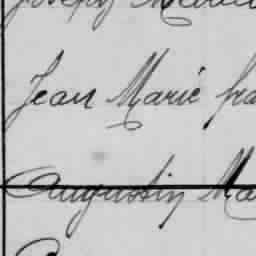 Joseph
Jean Marie fra
Augustin Ma